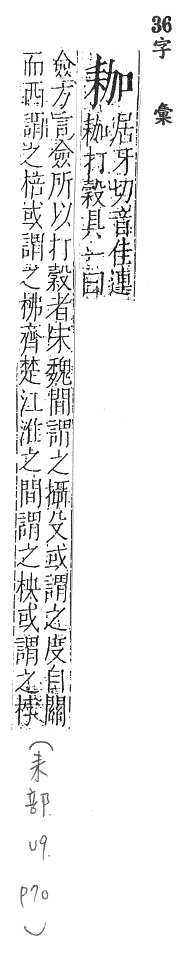 36
字彙
耞居牙切音佳連
耞打穀具一曰
僉方言僉所以打穀者宋魏間謂之攝殳或謂之度自關
而西謂之棓或謂之柫齊楚江淮之間謂之柍或謂之桲
(耒部. u9. p70)